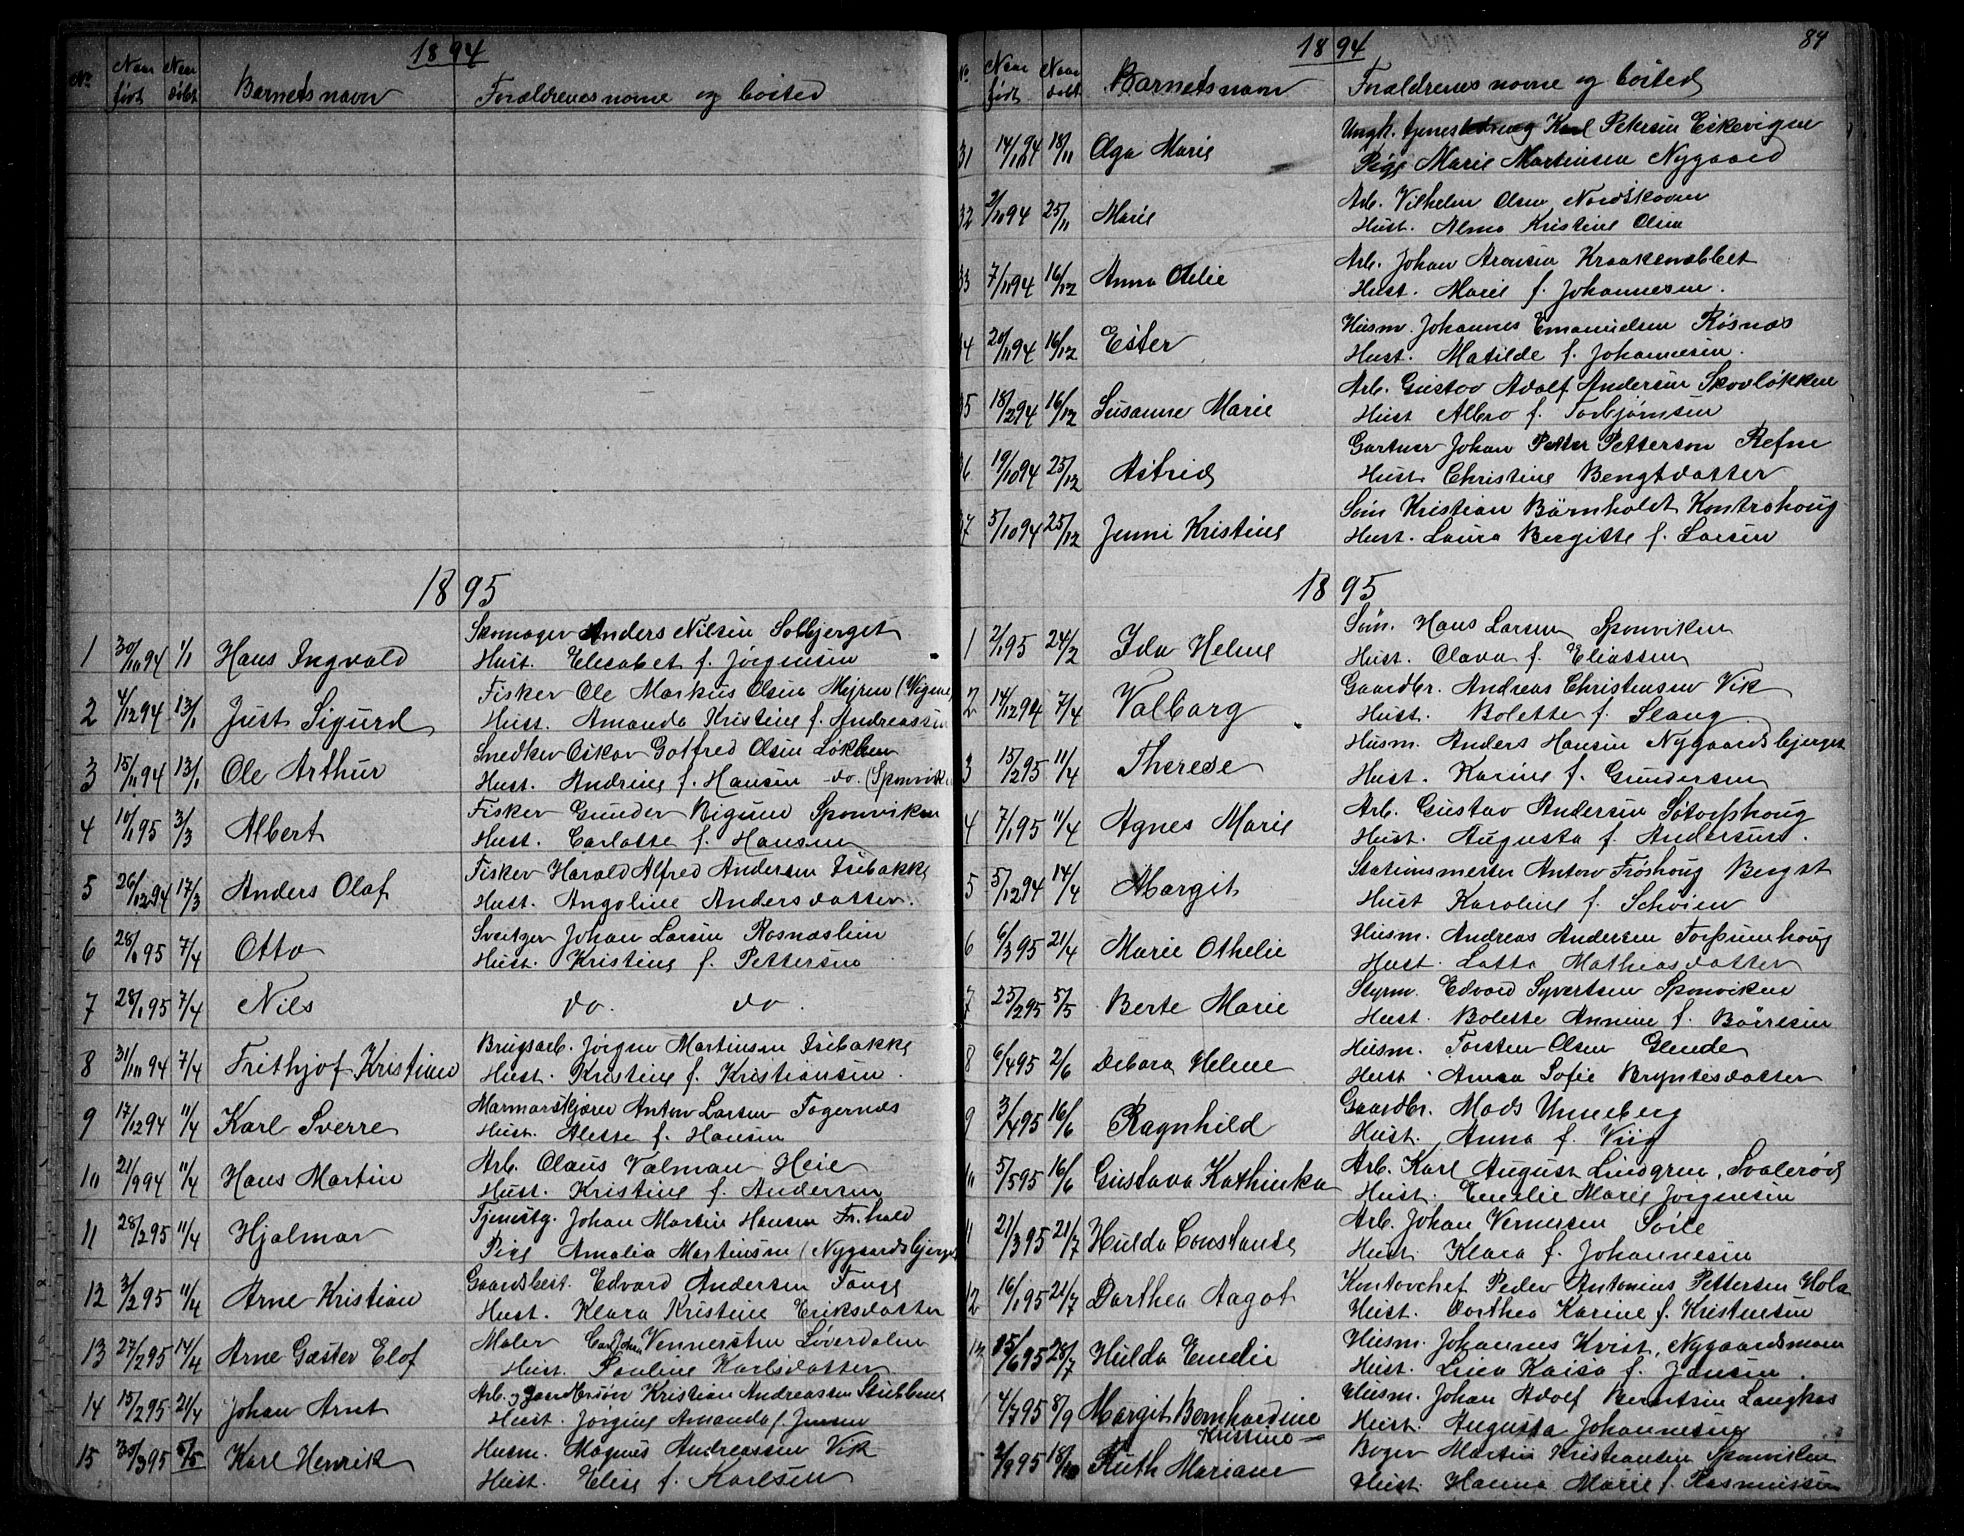 1894
No Naar født Naar døbt Barnets navn Forældrenes navne og bosted
1895
1 30/10 94 1/1 Hans Ingvald Skomager Anders Nilsen Solbjerget
Hust. Elisabet f. Jørgensen
2 4/12 94 13/1 Just Sigurd Fisker Ole Markus Olsen Mejren (Vigene
Hust. Amanda Kristine f. Andreassen
3 15/11 94 13/1 Ole Arthur Snedker Oskar Gotfred Olsen Løkken
Hust. Andrine f. Hansen do. (Sponvik
4 10/1 95 3/3 Albert Fisker Gunder Sponviken
Hust. Carlotte f. Hansen
5 26/12 94 17/3 Anders Olaf Fisker Harald Alfred Andersen Isebakke
Hust. Angoline Andersdatter.
6 28/1 95 7/4 Otto Sveitzer Johan Larsen Rosnæslien
Hust. Kristine f. Pettersen
7 28/1 95 7/4 Nils do. do.
8 31/10 94 7/4 Frithjof Kristian Brugsarb. Jørgen Martinsen Isebakke
Hust. Kristine f. Kristiansen.
9 17/12 94 11/4 Karl Sverre Marmorskjærer Anton Larsen Fagernæs
Hust. Alette f. Hansen
10 21/9 94 11/4 Hans Martin Arb. Claus Valman Heie
Hust. Kristine f. Andersen
11 28/2 95 11/4 Hjalmar Tjenestg. Johan Martin Hansen Fr.hald
Pige Amalia Martinsen (Nygaardsbjerget
12 3/2 95 11/4 Arne Kristian Gaardsbest. Edvard Andersen Tange
Hust. Klara Kristine Eriksdatter
13 27/2 95 14/4 Arne Gøster Elof Maler Carl Johan Vennersten Løverdalen
Hust. Pauline Karlsdatter
14 15/2 95 21/4 Johan Arnt Arb. Kristian Andreassen Stubbene
Hust. Jørgine Amanda f. Jensen
15 30/3 95 5/5 Karl Henrik Husm. Magnus Andreassen Vik
Hust. Elise f. Karlsen
1894 84
No Naar født Naar døbt Barnets navn Forældrenes navne og bosted
31 14/10 94 18/11 Olga Marie Ungk. tjenestdreng Karl Petersen Eskevigen
Pige Marie Martinsen Nygaard
32 2/10 94 25/11 Marie Arb. Vilhelm Olsen, Nordskoven
Hust. Alma Kristine Olsen
33 7/11 94 16/12 Anna Otilie Arb. Johan Aronsen Kraakenæbbet
Hust. Marie f. Johannesen.
34 20/11 94 16/12 Ester Husm. Johannes Emanuelsen Røsnæs
Hust. Matilde f. Johannesen.
35 18/2 94 16/12 Susanne Marie Arb. Gustav Adolf Andersen Skovløkken
Hust Albero f. Torbjørnsen
36 19/10 94 25/12 Astrid Gartner Johan Peter Petterson Refne
Hust. Christine Bengtdatter
37 5/10 94 25/12 Jenni Kristine Søm Kristian Børnholdt Kontrahoug
Hust. Laura Bergitte f. Larsen
1895
1 2/1 95 24/2 Ida Helene Søm. Hans Larsen Sponviken
Hust. Olava f. Eliassen
2 14/12 94 7/4 Valborg Gaardbr. Andreas Christensen Vik
Hust. Bolette f. Stang
3 15/2 95 11/4 Therese Husm. Anders Hansen Nygaardsbjerget
Hust. Karine f. Gundersen
4 7/1 95 11/4 Agnes Marie Arb. Gustav Andersen Søtorphoug
Hust. Augusta f. Andersen.
5 5/12 94 14/4 Margit Stationsmester Anton Frøshoug Berg st
Hust Karoline f. Schøien
6 6/3 95 21/4 Marie Othelie Husm. Andreas Andersen Torpumhoug
Hust. Lotta Mathiasdatter
7 25/2 95 5/5 Berte Marie Styrm. Edvard Syvertsen Sponviken
Hust. Bolette Annine f. Børresen
8 6/4 95 2/6 Debora Helene Husm. Torsten Olsen Glende
Hust. Anna Sofie Bryntesdatter
9 3/4 95 16/6 Ragnhild Gaardbr. Mads Unneberg
Hust. Anna f. Viig
10 5/5 95 16/6 Gustava Kathinka Arb. Karl August Lindgren, Svalerød
Hust. Emilie Marie Jørgensen
11 21/3 95 21/7 Hulda Constanse Arb. Johan Vernersen Sørlie
Hust. Klara f. Johannesen
12 16/1 95 21/7 Dorthea Aagot Kontorchef Peder Antonius Pettersen Hola
Hust. Dorthea Karine f. Kristensen
13 25/6 95 28/7 Hulda Emelie Husm. Johannes Kvist, Nygaardsmoen
Hust. Lina Kaisa f. Jansen.
4/7 95 8/9 Margit Bernhardine Kristine Husm. Johan Adolf Berntsen Langkas
Hust. Augusta Johannesen
5 2/9 95 18/10 Ruth Mariane Bager Martin Kristiansen Sponviken
Hust. Hanna Marie f. Rasmussen